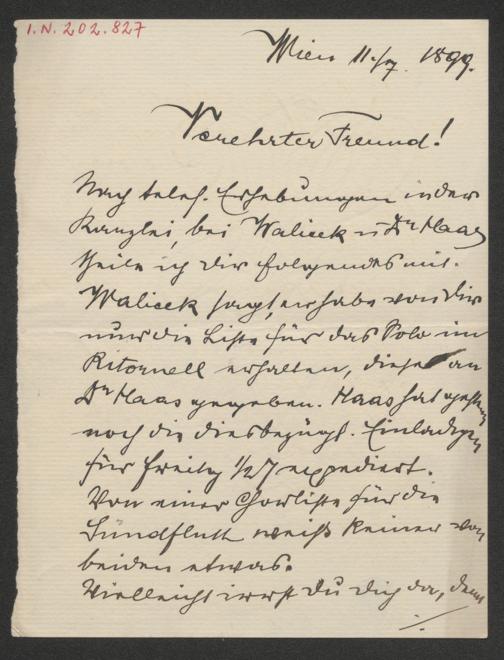 I.N. 202.827
Wien 11./7. 1899.
Verehrter Freund!
Nach telef. Erhebungen in der
Kanzlei, bei Walicek u Dr Haas
theile ich dir folgendes mit.
Walicek sagt, er habe von dir
nur die Liste für das Solo im
Ritornell erhalten, diese an
Dr Haas gegeben. Haas hat gestern
noch die diesbezügl. Einladungen
für Freitag 1/2 7 expediert.
Von einer Chorliste für die
Sündfluth weiß keiner von
beiden etwas.
Vielleicht irrst du dich da, denn